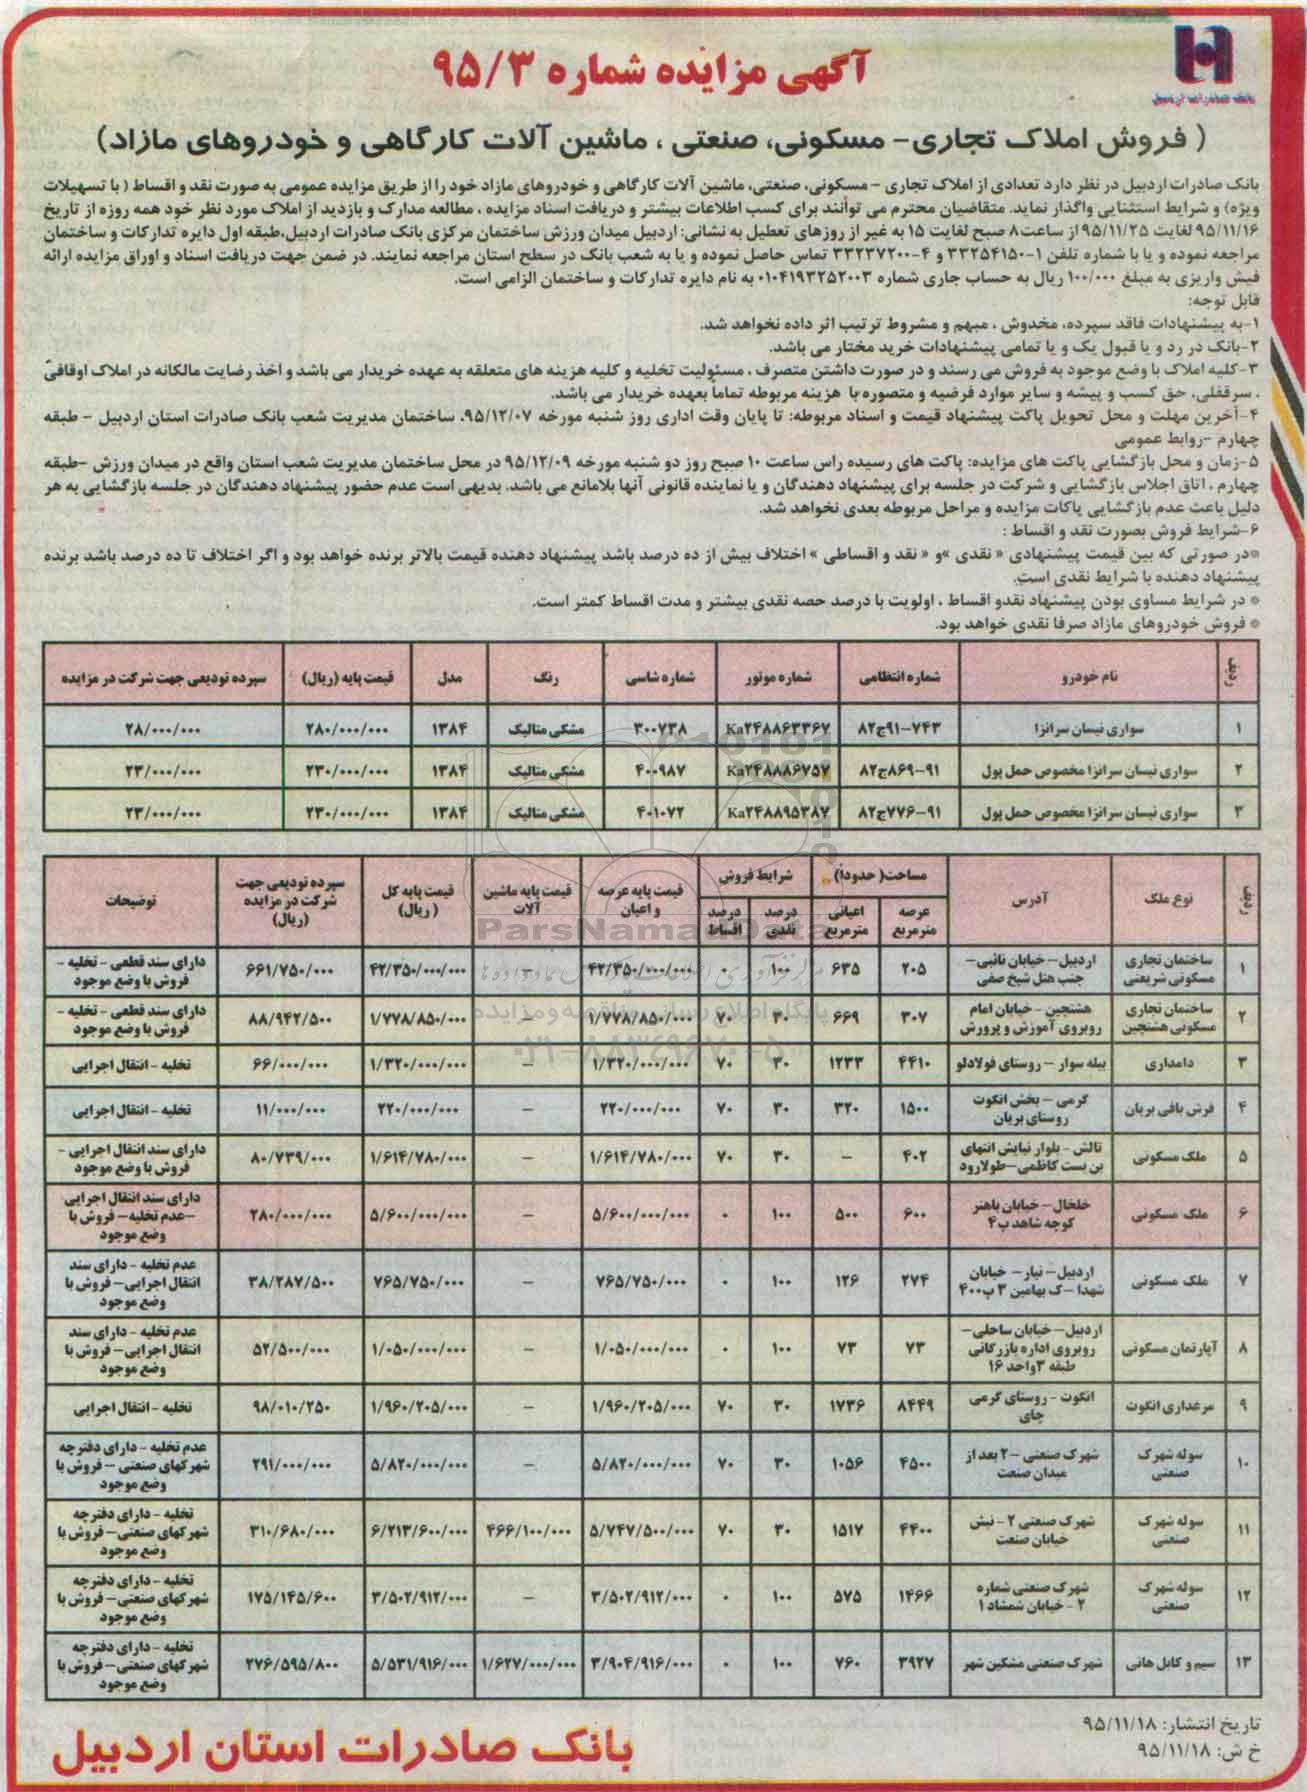 بانک صادرات اردبیل
آگهی مزایده شماره ۹۵/۳
( فروش املاک تجاری- مسکونی، صنعتی ، ماشین آلات کارگاهی و خودروهای مازاد)
بانک صادرات اردبیل در نظر دارد تعدادی از املاک تجاری – مسکونی، صنعتی، ماشین آلات کارگاهی و خودروهای مازاد خود را از طریق مزایده عمومی به صورت نقد و اقساط ( با تسهیلات
ویژه) و شرایط استثنایی واگذار نماید. متقاضیان محترم می توانند برای کسب اطلاعات بیشتر و دریافت اسناد مزایده ، مطالعه مدارک و بازدید از املاک مورد نظر خود همه روزه از تاریخ
۹۵/۱۱/۱۶ لغایت ۹۵/۱۱/۲۵ از ساعت۸ صبح لغایت ۱۵ به غیر از روزهای تعطیل به نشانی: اردبیل میدان ورزش ساختمان مرکزی بانک صادرات اردبیل،طبقه اول دایره تدارکات و ساختمان
مراجعه نموده و یا با شماره تلفن ۱-۳۳۲۵۴۱۵۰ و ۴-۳۳۲۳۷۲۰۰ تماس حاصل نموده و یا به شعب بانک در سطح استان مراجعه نمایند. در ضمن جهت دریافت اسناد و اوراق مزایده ارائه
فیش واریزی به مبلغ ۱۰۰/۰۰۰ ریال به حساب جاری شماره ۰۱۰۴۱۹۳۲۵۲۰۰۳ به نام دایره تدارکات و ساختمان الزامی است.
قابل توجه:
۱-به پیشنهادات فاقد سپرده، مخدوش ، مبهم و مشروط ترتیب اثر داده نخواهد شد.
۲-بانک در رد و یا قبول یک و یا تمامی پیشنهادات خرید مختار می باشد.
۳-کلیه املاک با وضع موجود به فروش می رسند و در صورت داشتن متصرف ، مسئولیت تخلیه و کلیه هزینه های متعلقه به عهده خریدار می باشد و اخذ رضایت مالکانه در املاک اوقافی
، سرقفلی، حق کسب و پیشه و سایر موارد فرضیه و متصوره با هزینه مربوطه تماماً بعهده خریدار می باشد.
۴-آخرین مهلت و محل تحویل پاکت پیشنهاد قیمت و اسناد مربوطه: تا پایان وقت اداری روز شنبه مورخه ۹۵/۱۲/۰۷، ساختمان مدیریت شعب بانک صادرات استان اردبیل – طبقه
چهارم –روابط عمومی
۵-زمان و محل بازگشایی پاکت های مزایده: پاکت های رسیده راس ساعت ۱۰ صبح روز دو شنبه مورخه ۹۵/۱۲/۰۹ در محل ساختمان مدیریت شعب استان واقع در میدان ورزش –طبقه
چهارم ، اتاق اجلاس بازگشایی و شرکت در جلسه برای پیشنهاد دهندگان و یا نماینده قانونی آنها بلامانع می باشد. بدیهی است عدم حضور پیشنهاد دهندگان در جلسه بازگشایی به هر
دلیل باعث عدم بازگشایی پاکات مزایده و مراحل مربوطه بعدی نخواهد شد.
۶-شرایط فروش بصورت نقد و اقساط :
*در صورتی که بین قیمت پیشنهادی « نقدی »و « نقد و اقساطی » اختلاف بیش از ده درصد باشد پیشنهاد دهنده قیمت بالاتر برنده خواهد بود و اگر اختلاف تا ده درصد باشد برنده
پیشنهاد دهنده با شرایط نقدی است.
* در شرایط مساوی بودن پیشنهاد نقدو اقساط ، اولویت با درصد حصه نقدی بیشتر و مدت اقساط کمتر است.
* فروش خودروهای مازاد صرفا نقدی خواهد بود.
ردیف نام خودرو شماره انتظامی شماره موتور شماره شاسی رنگ مدل قیمت پایه (ریال) سپرده تودیعی جهت شرکت در مزایده
۱ سواری نیسان سرانزا ۸۲ج۷۴۳-۹۱ Ka۲۴۸۸۶۳۳۶۷ ۳۰۰۷۳۸ مشکی متالیک ۱۳۸۴ ۲۸۰/۰۰۰/۰۰۰ ۲۸/۰۰۰/۰۰۰
۲ سواری نیسان سرانزا مخصوص حمل پول ۸۲ج۸۶۹-۹۱ Ka۲۴۸۸۸۶۷۵۷ ۴۰۰۹۸۷ مشکی متالیک ۱۳۸۴ ۲۳۰/۰۰۰/۰۰۰ ۲۳/۰۰۰/۰۰۰
۳ سواری نیسان سرانزا مخصوص حمل پول ۸۲ج۷۷۶-۹۱ Ka۲۴۸۸۹۵۳۸۷ ۴۰۱۰۷۲ مشکی متالیک ۱۳۸۴ ۲۳۰/۰۰۰/۰۰۰ ۲۳/۰۰۰/۰۰۰
ردیف نوع ملک آدرس مساحت( حدوداً) شرایط فروش قیمت پایه عرصه و اعیان قیمت پایه ماشین آلات قیمت پایه کل ( ریال) سپرده تودیعی جهت شرکت در مزایده (ریال) توضیحات
عرصه مترمربع اعیانی مترمربع درصد نقدی درصد اقساط
۱ ساختمان تجاری مسکونی شریعتی اردبیل– خیابان نائبی– جنب هتل شیخ صفی ۲۰۵ ۶۳۵ ۱۰۰ ۰ ۴۲/۳۵۰/۰۰۰/۰۰۰ – ۴۲/۳۵۰/۰۰۰/۰۰۰ ۶۶۱/۷۵۰/۰۰۰ دارای سند قطعی - تخلیه - فروش با وضع موجود
۲ ساختمان تجاری مسکونی هشتچین هشتچین – خیابان امام روبروی آموزش و پرورش ۳۰۷ ۶۶۹ ۳۰ ۷۰ ۱/۷۷۸/۸۵۰/۰۰۰ – ۱/۷۷۸/۸۵۰/۰۰۰ ۸۸/۹۴۲/۵۰۰ دارای سند قطعی - تخلیه - فروش با وضع موجود
۳ دامداری بیله سوار – روستای فولادلو ۴۴۱۰ ۱۲۳۳ ۳۰ ۷۰ ۱/۳۲۰/۰۰۰/۰۰۰ – ۱/۳۲۰/۰۰۰/۰۰۰ ۶۶/۰۰۰/۰۰۰ تخلیه - انتقال اجرایی
۴ فرش بافی بریان گرمی – بخش انگوت روستای بریان ۱۵۰۰ ۳۲۰ ۳۰ ۷۰ ۲۲۰/۰۰۰/۰۰۰ – ۲۲۰/۰۰۰/۰۰۰ ۱۱/۰۰۰/۰۰۰ تخلیه - انتقال اجرایی
۵ ملک مسکونی تالش - بلوار نیایش انتهای بن بست کاظمی–طولارود ۴۰۲ – ۳۰ ۷۰ ۱/۶۱۴/۷۸۰/۰۰۰ – ۱/۶۱۴/۷۸۰/۰۰۰ ۸۰/۷۳۹/۰۰۰ دارای سند انتقال اجرایی - فروش با وضع موجود
۶ ملک مسکونی خلخال– خیابان باهنر کوچه شاهد پ۴ ۶۰۰ ۵۰۰ ۱۰۰ ۰ ۵/۶۰۰/۰۰۰/۰۰۰ – ۵/۶۰۰/۰۰۰/۰۰۰ ۲۸۰/۰۰۰/۰۰۰ دارای سند انتقال اجرایی –عدم تخلیه– فروش با وضع موجود
۷ ملک مسکونی اردبیل– نیار– خیابان شهدا –ک بهامین ۳ پ۴۰۰ ۲۷۴ ۱۲۶ ۱۰۰ ۰ ۷۶۵/۷۵۰/۰۰۰ – ۷۶۵/۷۵۰/۰۰۰ ۳۸/۲۸۷/۵۰۰ عدم تخلیه - دارای سند انتقال اجرایی– فروش با وضع موجود
۸ آپارتمان مسکونی اردبیل– خیابان ساحلی– روبروی اداره بازرگانی طبقه ۳واحد ۱۶ ۷۳ ۷۳ ۱۰۰ ۰ ۱/۰۵۰/۰۰۰/۰۰۰ – ۱/۰۵۰/۰۰۰/۰۰۰ ۵۲/۵۰۰/۰۰۰ عدم تخلیه - دارای سند انتقال اجرایی– فروش با وضع موجود
۹ مرغداری انگوت انگوت - روستای گرمی چای ۸۴۴۹ ۱۷۳۶ ۳۰ ۷۰ ۱/۹۶۰/۲۰۵/۰۰۰ – ۱/۹۶۰/۲۰۵/۰۰۰ ۹۸/۰۱۰/۲۵۰ تخلیه - انتقال اجرایی
۱۰ سوله شهرک صنعتی شهرک صنعتی –۲ بعد از میدان صنعت ۴۵۰۰ ۱۰۵۶ ۳۰ ۷۰ ۵/۸۲۰/۰۰۰/۰۰۰ – ۵/۸۲۰/۰۰۰/۰۰۰ ۲۹۱/۰۰۰/۰۰۰ عدم تخلیه - دارای دفترچه شهرکهای صنعتی – فروش با وضع موجود
۱۱ سوله شهرک صنعتی شهرک صنعتی ۲ - نبش خیابان صنعت ۴۴۰۰ ۱۵۱۷ ۳۰ ۷۰ ۵/۷۴۷/۵۰۰/۰۰۰ ۴۶۶/۱۰۰/۰۰۰ ۶/۲۱۳/۶۰۰/۰۰۰ ۳۱۰/۶۸۰/۰۰۰ تخلیه - دارای دفترچه شهرکهای صنعتی– فروش با وضع موجود
۱۲ سوله شهرک صنعتی شهرک صنعتی شماره ۲ - خیابان شمشاد ۱ ۱۴۶۶ ۵۷۵ ۱۰۰ ۰ ۳/۵۰۲/۹۱۲/۰۰۰ – ۳/۵۰۲/۹۱۲/۰۰۰ ۱۷۵/۱۴۵/۶۰۰ تخلیه - دارای دفترچه شهرکهای صنعتی– فروش با وضع موجود
۱۳ سیم و کابل هانی شهرک صنعتی مشکین شهر ۳۹۲۷ ۷۶۰ ۱۰۰ ۰ ۳/۹۰۴/۹۱۶/۰۰۰ ۱/۶۲۷/۰۰۰/۰۰۰ ۵/۵۳۱/۹۱۶/۰۰۰ ۲۷۶/۵۹۵/۸۰۰ تخلیه - دارای دفترچه شهرکهای صنعتی– فروش با وضع موجود
ParsNamadData
پایگاه اطلاع رسانی مناقصه و مزایده
۰۲۱-۸۸۳۴۹۶۷۰-۵
تاریخ انتشار: ۹۵/۱۱/۱۸
خ ش: ۹۵/۱۱/۱۸
بانک صادرات استان اردبیل